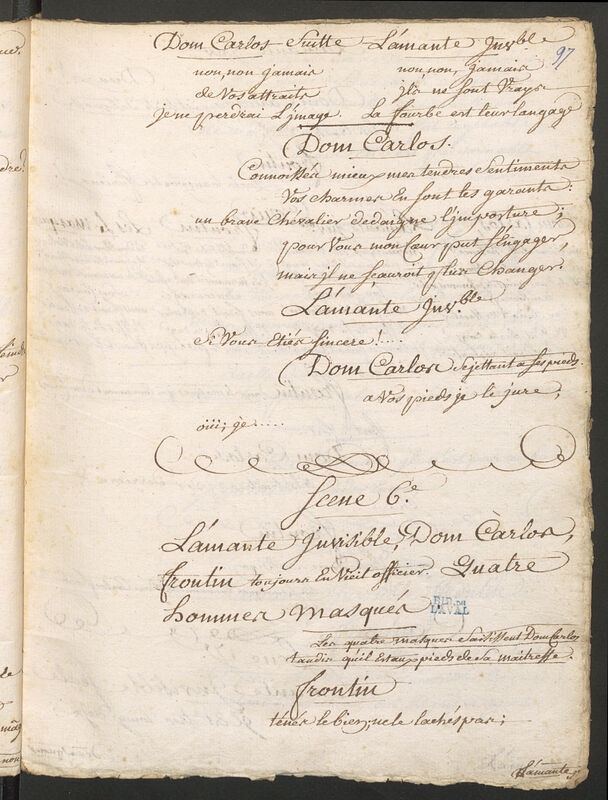 97
Dom Carlos Suitte L'amante Jnv.ble
non, non jamais non, non, jamais
de Vos attraits jls ne sont Vrays
je ne perdrai L'jmage. La fourbe est leur langage
Dom Carlos.
Connoissés mieux mes tendres Sentiments
Vos charmes En sont les garants:
un brave Chevalier dedaigne L'jmposture;
pour Vous mon Cœur put S'Engager,
mais jl ne Scauroit plus Changer.
L'amante Jnv.ble
Si Vous Etiés Sincere!....
Dom Carlos Se jettant a Ses pieds.
a Vos pieds je le jure,
oüi; je.....
Scene 6.e
L'amante Jnvisible, Dom Carlos,
frontin toujours En Vieil officier. Quatre
hommes masqués
BIB. DE
LAVAL
Les quatre masques Saisissent Dom Carlos
tandis qu'il Est aux pieds de Sa maitresse.
frontin
tenés le bien; ne le lachés pas;
L'amante